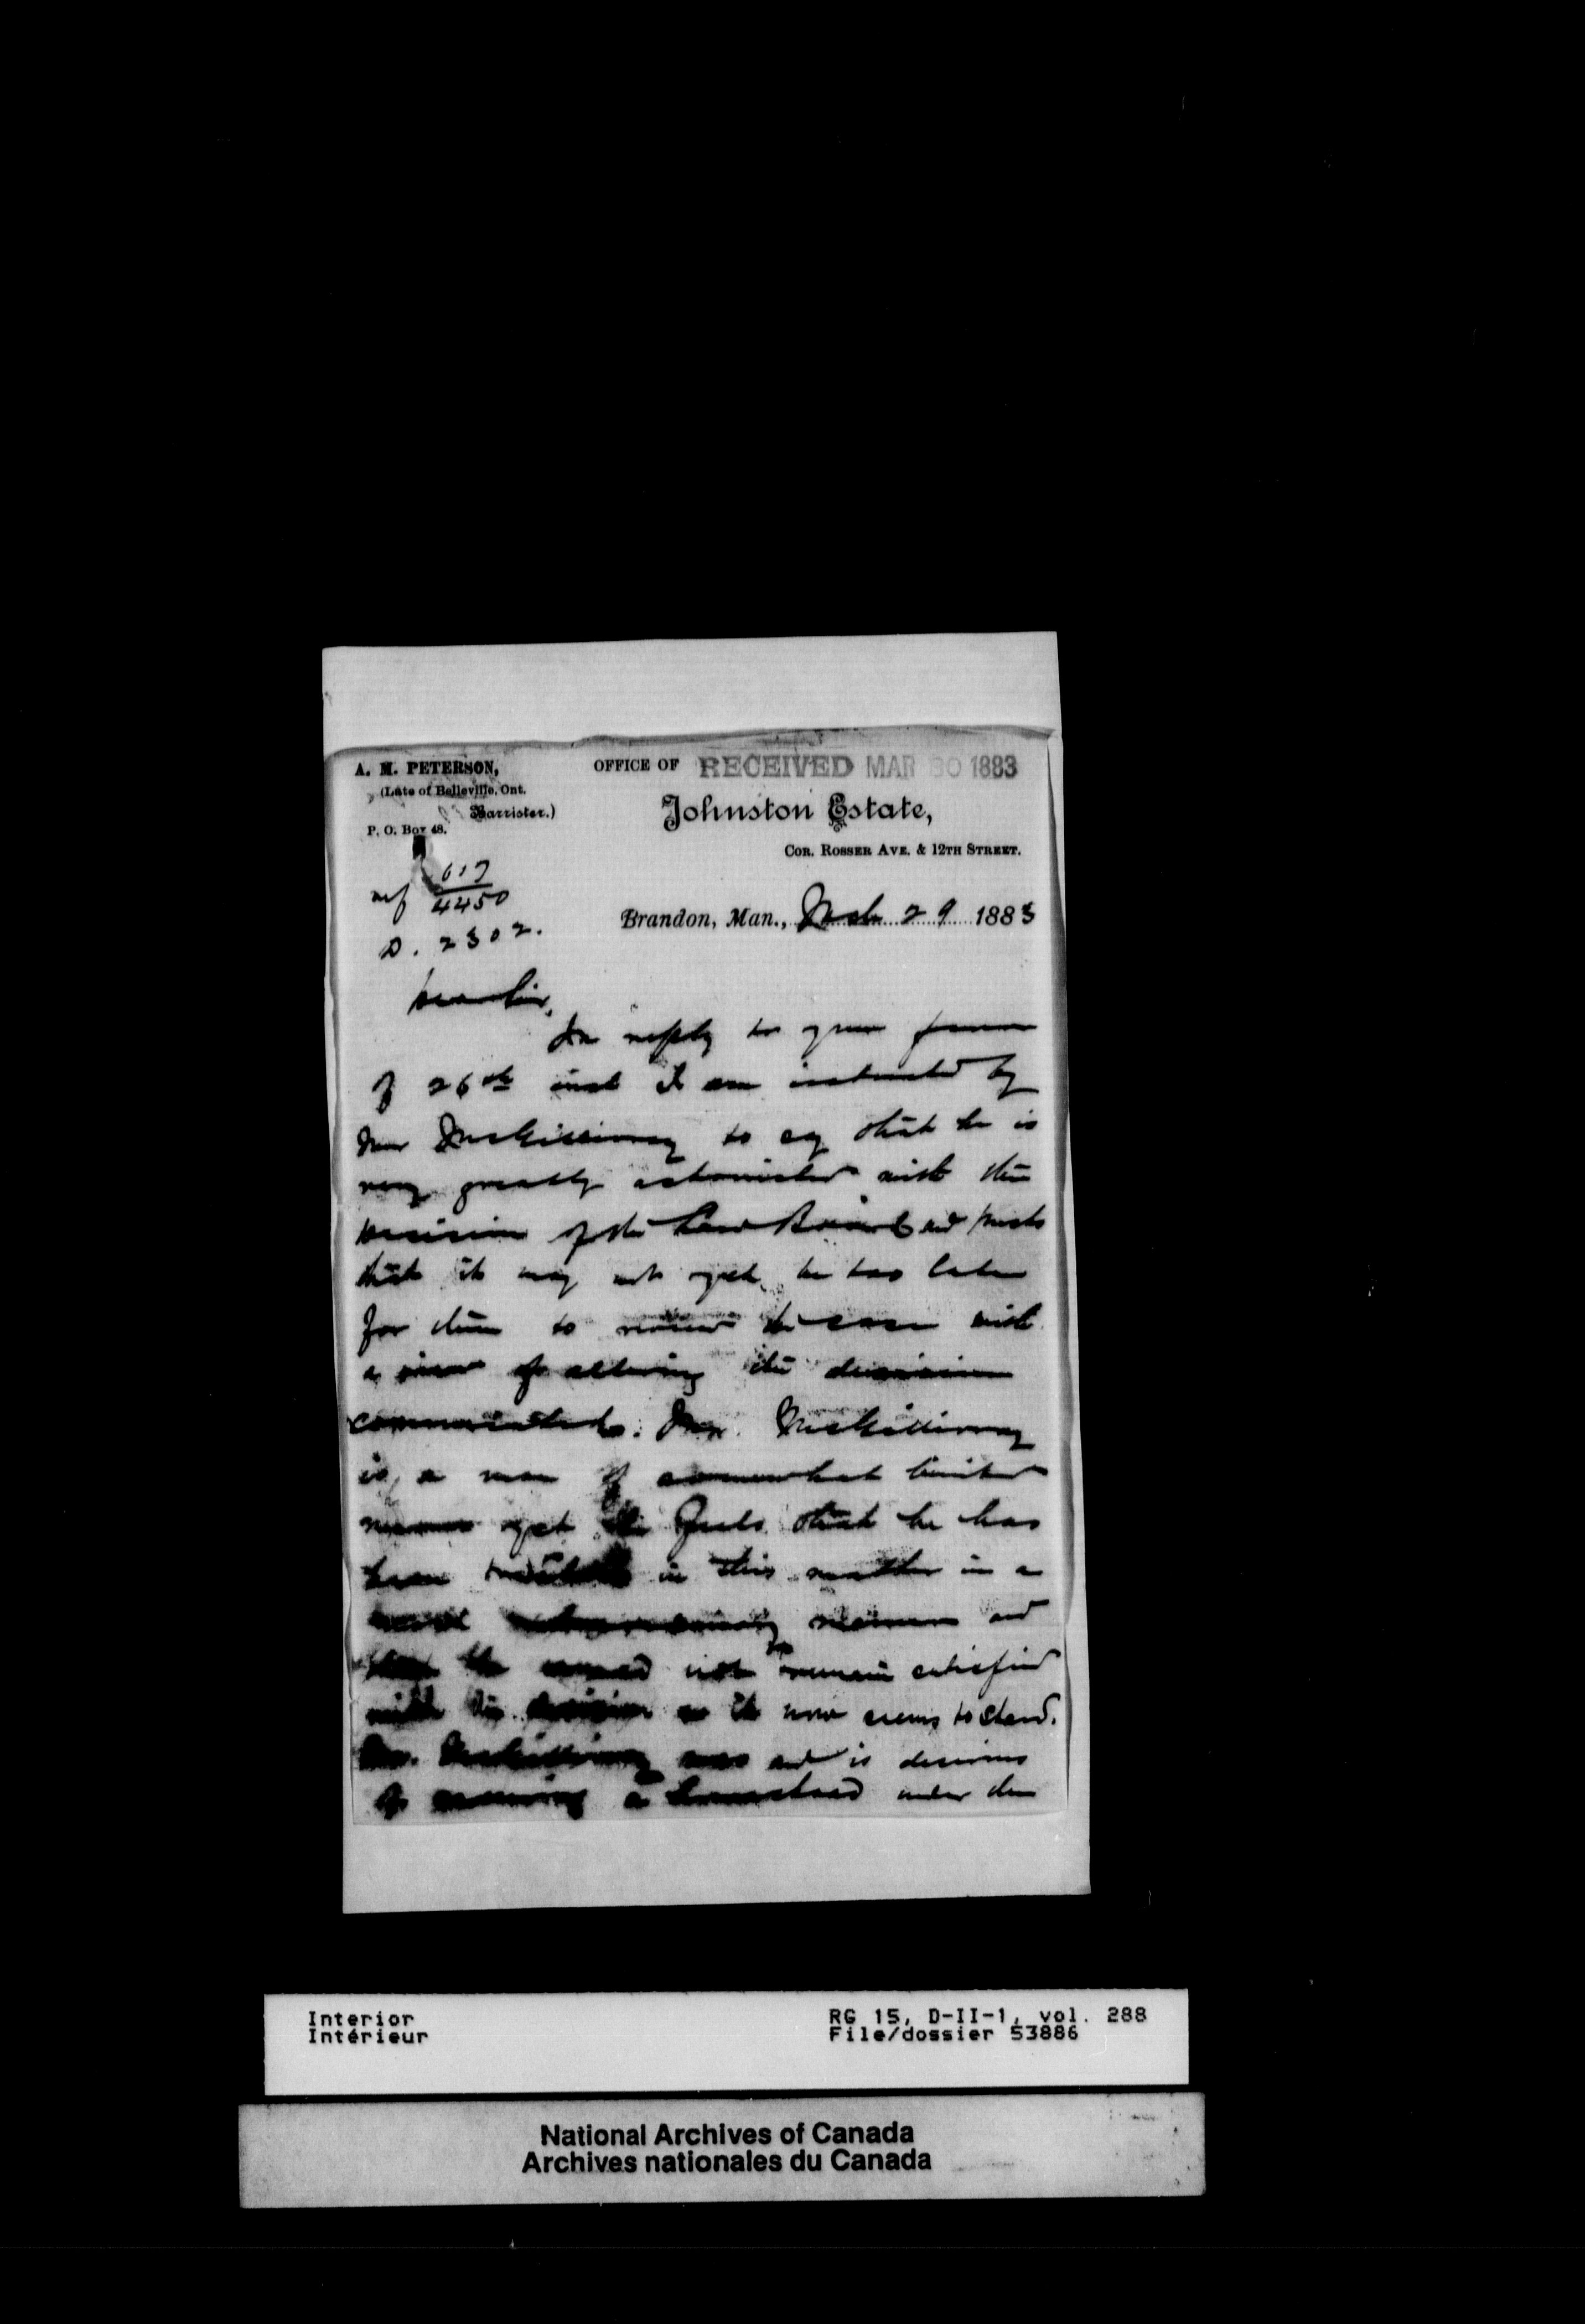 A. M. PETERSON,
(Late of Belleville, Ont.
Barrister.)
P. O. Box 48.
OFFICE OF RECEIVED MAR 30 1883
Johnston Estate,
COR. ROSSER AVE. & 12TH STREET.
ref 617
4450
D. 2302.
Brandon, Man., Mch 29 1883
Dear Sir,
In reply to your favour
of 26th inst I am instructed by
Mr McGillivray to say that he is
very greatly astonished with the
decision of the Land Board and trusts
that it may not yet be too late
for them to review the case with
a view of altering the decision
communicated. Mr. McGillivray
is a man of somewhat limited
means yet he feels that he has
been treated in this matter in a
most extraordinary manner and
that he not remain satisfied
with the decision as it now seems to stand.
Mr. McGillivray was and is desirous
of securing a homestead under the
Interior
Intérieur
RG 15, D-II-1, vol. 288
File/dossier 53886
National Archives of Canada
Archives nationales du Canada